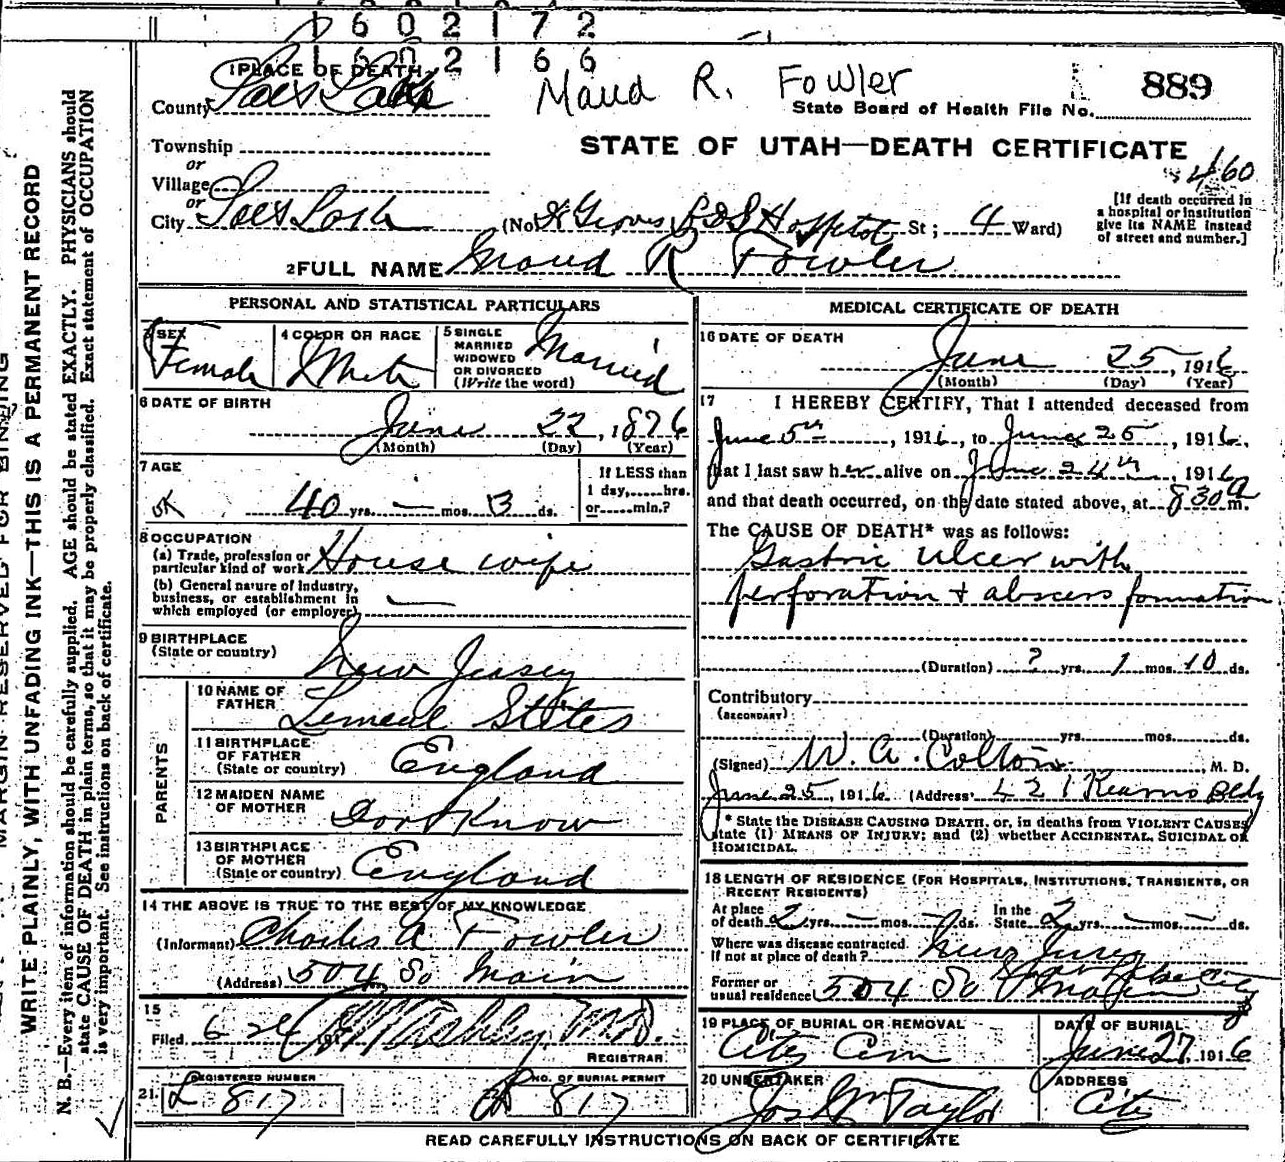 1602172
1602166
1 PLACE OF DEATH
County Salt Lake
Maud R. Fowler
889
State Board of Health File No.
Township
STATE OF UTAH—DEATH CERTIFICATE
or
Village
460
or
City Salt Lake (No. Groves LDS Hospital St; 4 Ward)
[If death occurred in a hospital or institution give its NAME instead of street and number.]
2 FULL NAME Maud R Fowler
PERSONAL AND STATISTICAL PARTICULARS
3 SEX Female
4 COLOR OR RACE White
5 SINGLE MARRIED WIDOWED OR DIVORCED (Write the word) Married
6 DATE OF BIRTH
June 22, 1876
(Month) (Day) (Year)
7 AGE
40 yrs. — mos. 3 ds.
If LESS than 1 day,......hrs. or......min.?
8 OCCUPATION
(a) Trade, profession or particular kind of work House wife
(b) General nature of industry, business, or establishment in which employed (or employer) —
9 BIRTHPLACE (State or country) New Jersey
PARENTS
10 NAME OF FATHER Lemeul Stites
11 BIRTHPLACE OF FATHER (State or country) England
12 MAIDEN NAME OF MOTHER Dont Know
13 BIRTHPLACE OF MOTHER (State or country) England
14 THE ABOVE IS TRUE TO THE BEST OF MY KNOWLEDGE
(Informant) Charles A Fowler
(Address) 504 So Main
15
Filed 6 26 M.D.
REGISTRAR
21. REGISTERED NUMBER L 817
NO. OF BURIAL PERMIT 817
MEDICAL CERTIFICATE OF DEATH
16 DATE OF DEATH
June 25, 1916
(Month) (Day) (Year)
17 I HEREBY CERTIFY, That I attended deceased from
June 5th, 1916, to June 25, 1916,
that I last saw her alive on June 24th, 1916
and that death occurred, on the date stated above, at 8 30 a m.
The CAUSE OF DEATH* was as follows:
Gastric Ulcer with
perforation + abscess formation
(Duration) ? yrs. 1 mos. 10 ds.
Contributory
(SECONDARY)
(Duration) yrs. mos. ds.
(Signed) W. A. Colton, M. D.
June 25, 1916 (Address) 421 Kearns Bldg
* State the DISEASE CAUSING DEATH, or, in deaths from VIOLENT CAUSES
state (1) MEANS OF INJURY; and (2) whether ACCIDENTAL, SUICIDAL OR
HOMICIDAL.
18 LENGTH OF RESIDENCE (FOR HOSPITALS, INSTITUTIONS, TRANSIENTS, OR
RECENT RESIDENTS)
At place of death 2 yrs. — mos. — ds. In the State 2 yrs. — mos. — ds.
Where was disease contracted if not at place of death? New Jersey
Former or usual residence 504 So Main Salt Lake City
19 PLACE OF BURIAL OR REMOVAL City Cem
DATE OF BURIAL June 27 1916
20 UNDERTAKER Jos Wm Taylor
ADDRESS City
READ CAREFULLY INSTRUCTIONS ON BACK OF CERTIFICATE
MARGIN RESERVED FOR BINDING
WRITE PLAINLY, WITH UNFADING INK—THIS IS A PERMANENT RECORD
N. B.—Every item of information should be carefully supplied. AGE should be stated EXACTLY. PHYSICIANS should
state CAUSE OF DEATH in plain terms, so that it may be properly classified. Exact statement of OCCUPATION
is very important. See instructions on back of certificate.